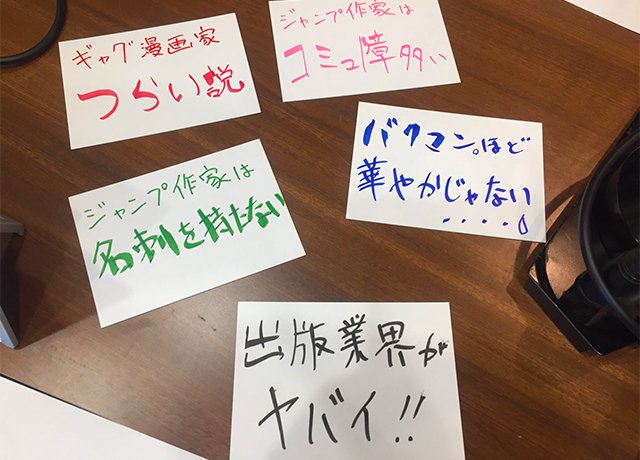 ギャグ漫画家
つらい説
ジャンプ作家は
コミュ障多い
バクマン。ほど
華やかじゃない
....。
ジャンプ作家は
名刺を持たない
出版業界が
ヤバイ!!